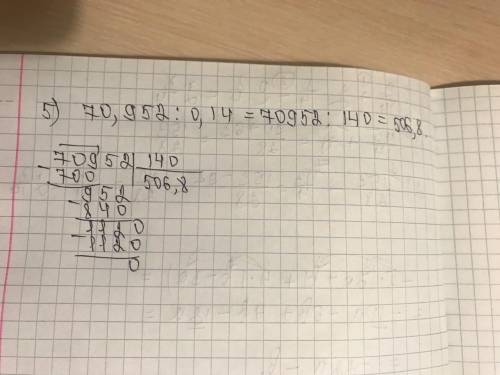 5) 70,952 : 0,14 = 70952 : 140 = 506,8.
70952 | 140
- 700 | 506,8
952
- 840
1120
- 1120
0